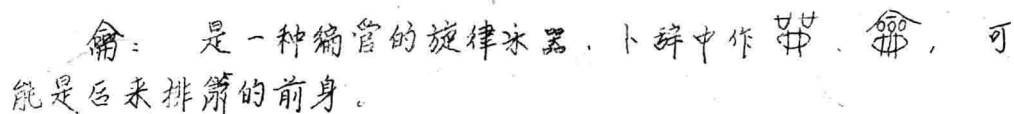 龠： 是一种编管的旋律乐器、卜辞中作 、 ， 可
能是后来排箫的前身。